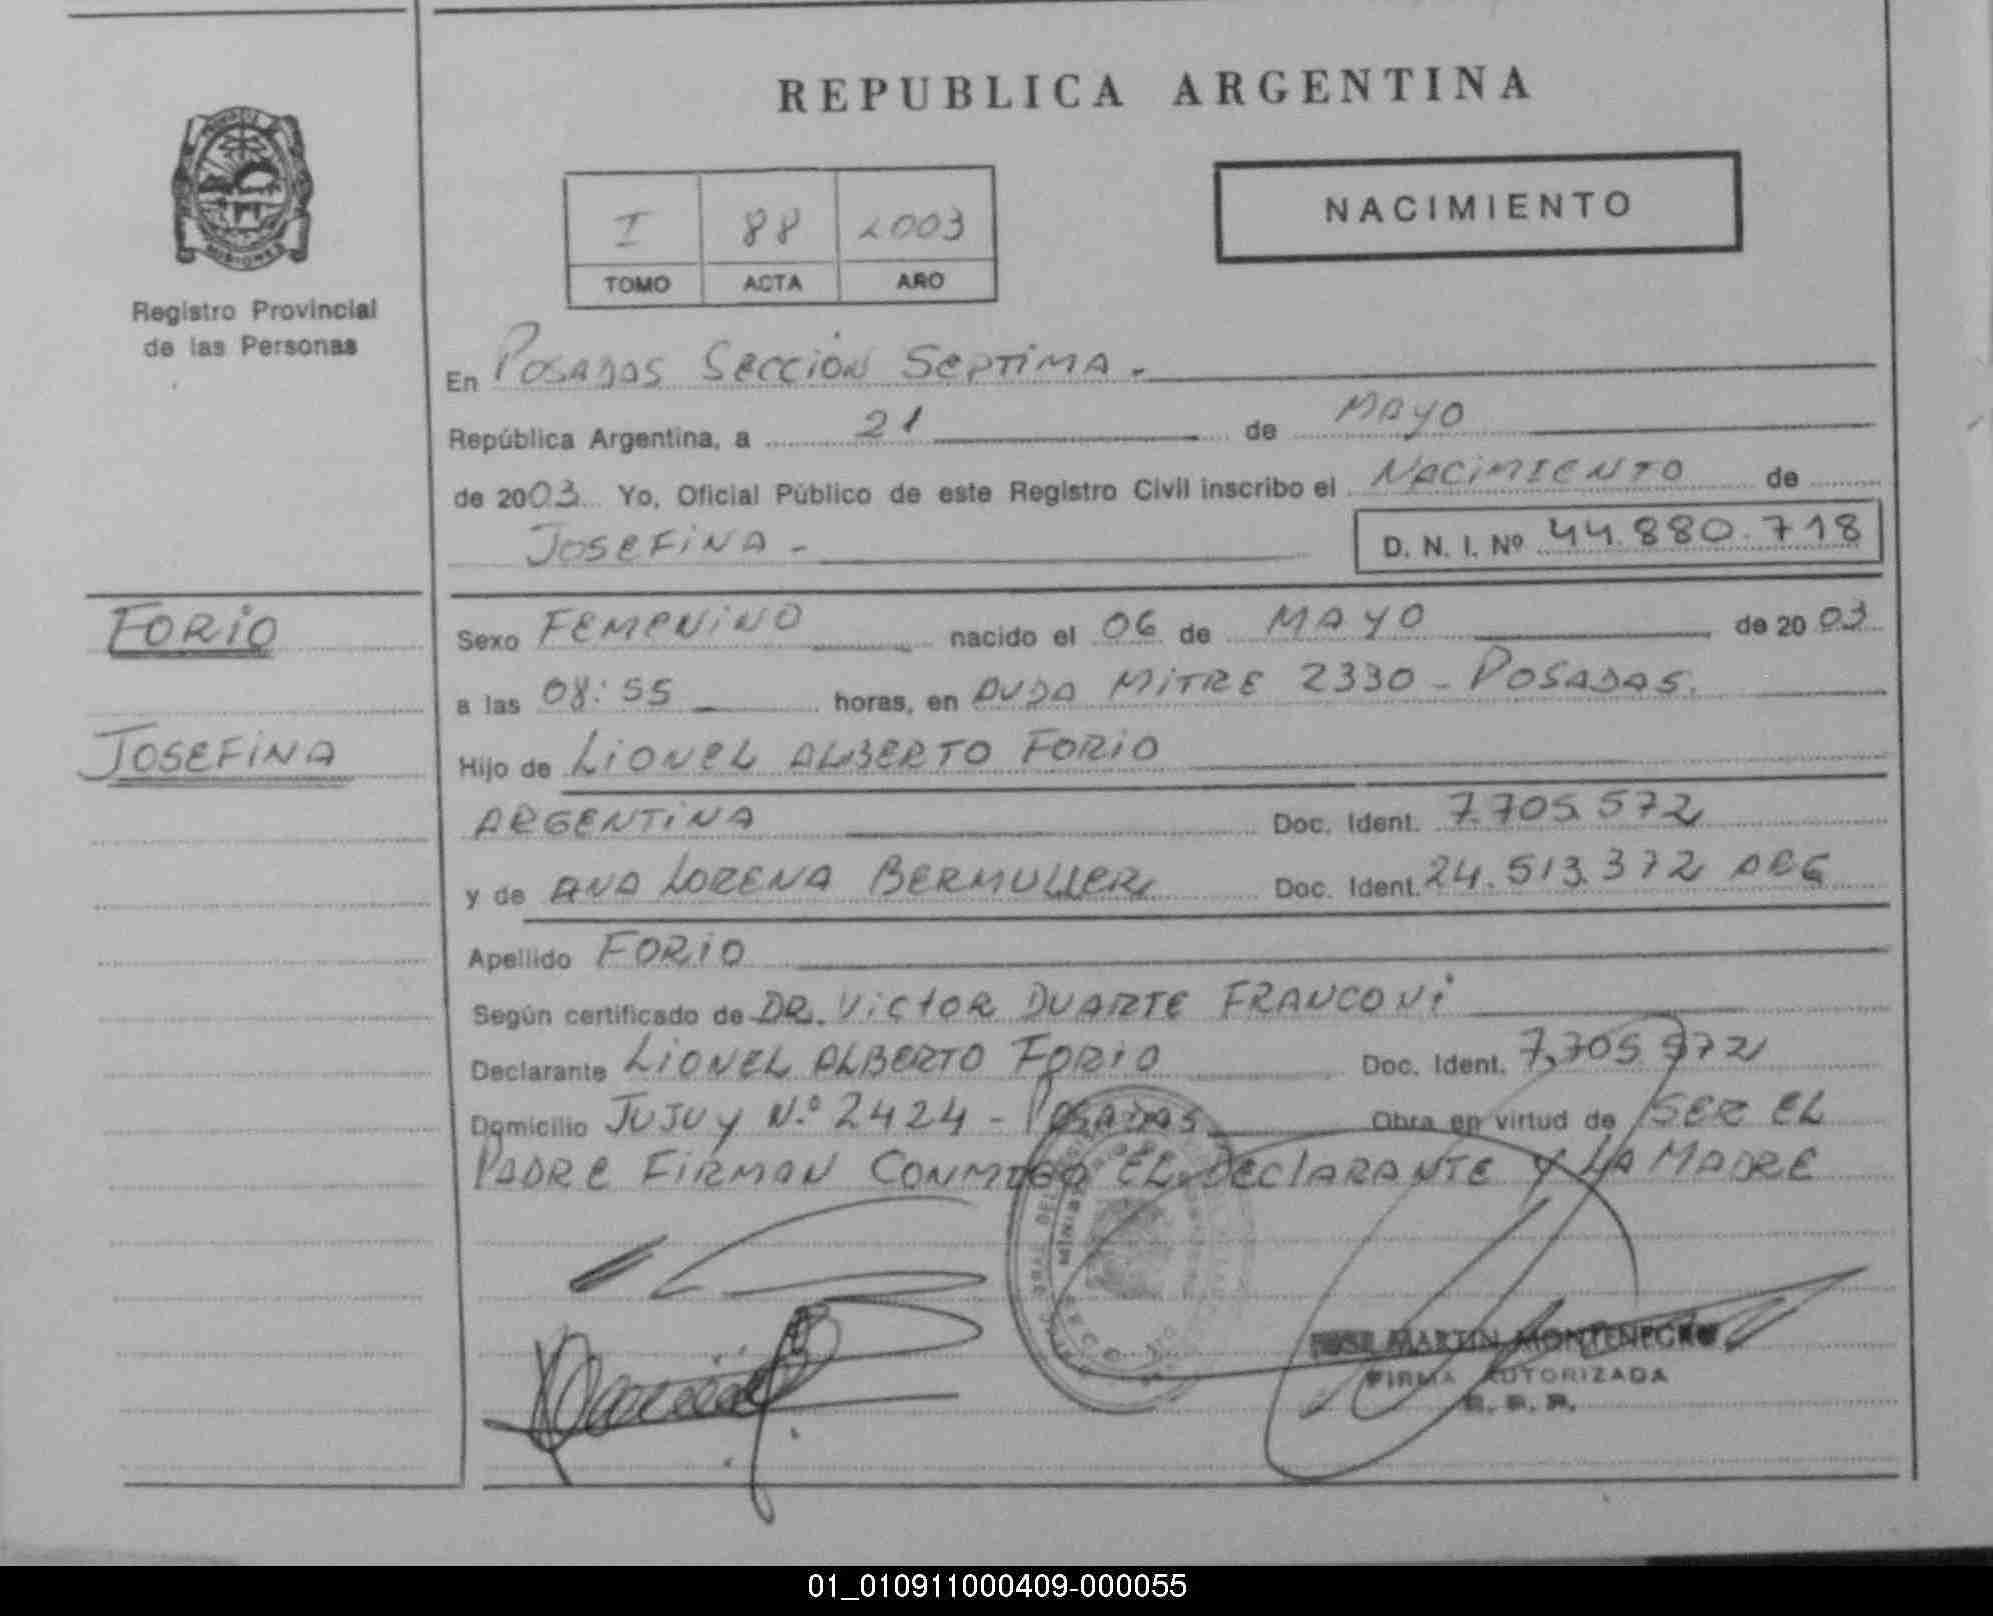 REPUBLICA ARGENTINA
NACIMIENTO
I 88 2003
TOMO ACTA AÑO
Registro Provincial
de las Personas
MISIONES
En POSADAS SECCIÓN SEPTIMA.
República Argentina, a 21 de MAYO
de 2003 Yo, Oficial Público de este Registro Civil inscribo el NACIMIENTO de
JOSEFINA - D. N. I. Nº 44.880.718
FORIO
JOSEFINA
Sexo FEMENINO nacido el 06 de MAYO de 2003
a las 08:55 horas, en AVDA MITRE 2330 - POSADAS.
Hijo de LIONEL ALBERTO FORIO
ARGENTINA Doc. Ident. 7.705.572
y de ANA LORENA BERMULLER Doc. Ident. 24.513.372 ARG
Apellido FORIO
Según certificado de DR. VICTOR DUARTE FRANCONI
Declarante LIONEL ALBERTO FORIO Doc. Ident. 7.705.572
Domicilio JUJUY N.º 2424 - POSADAS Obra en virtud de SER EL
PADRE FIRMAN CONMIGO EL DECLARANTE Y LA MADRE
MARTIN MONTENEGRO
FIRMA AUTORIZADA
01_010911000409-000055